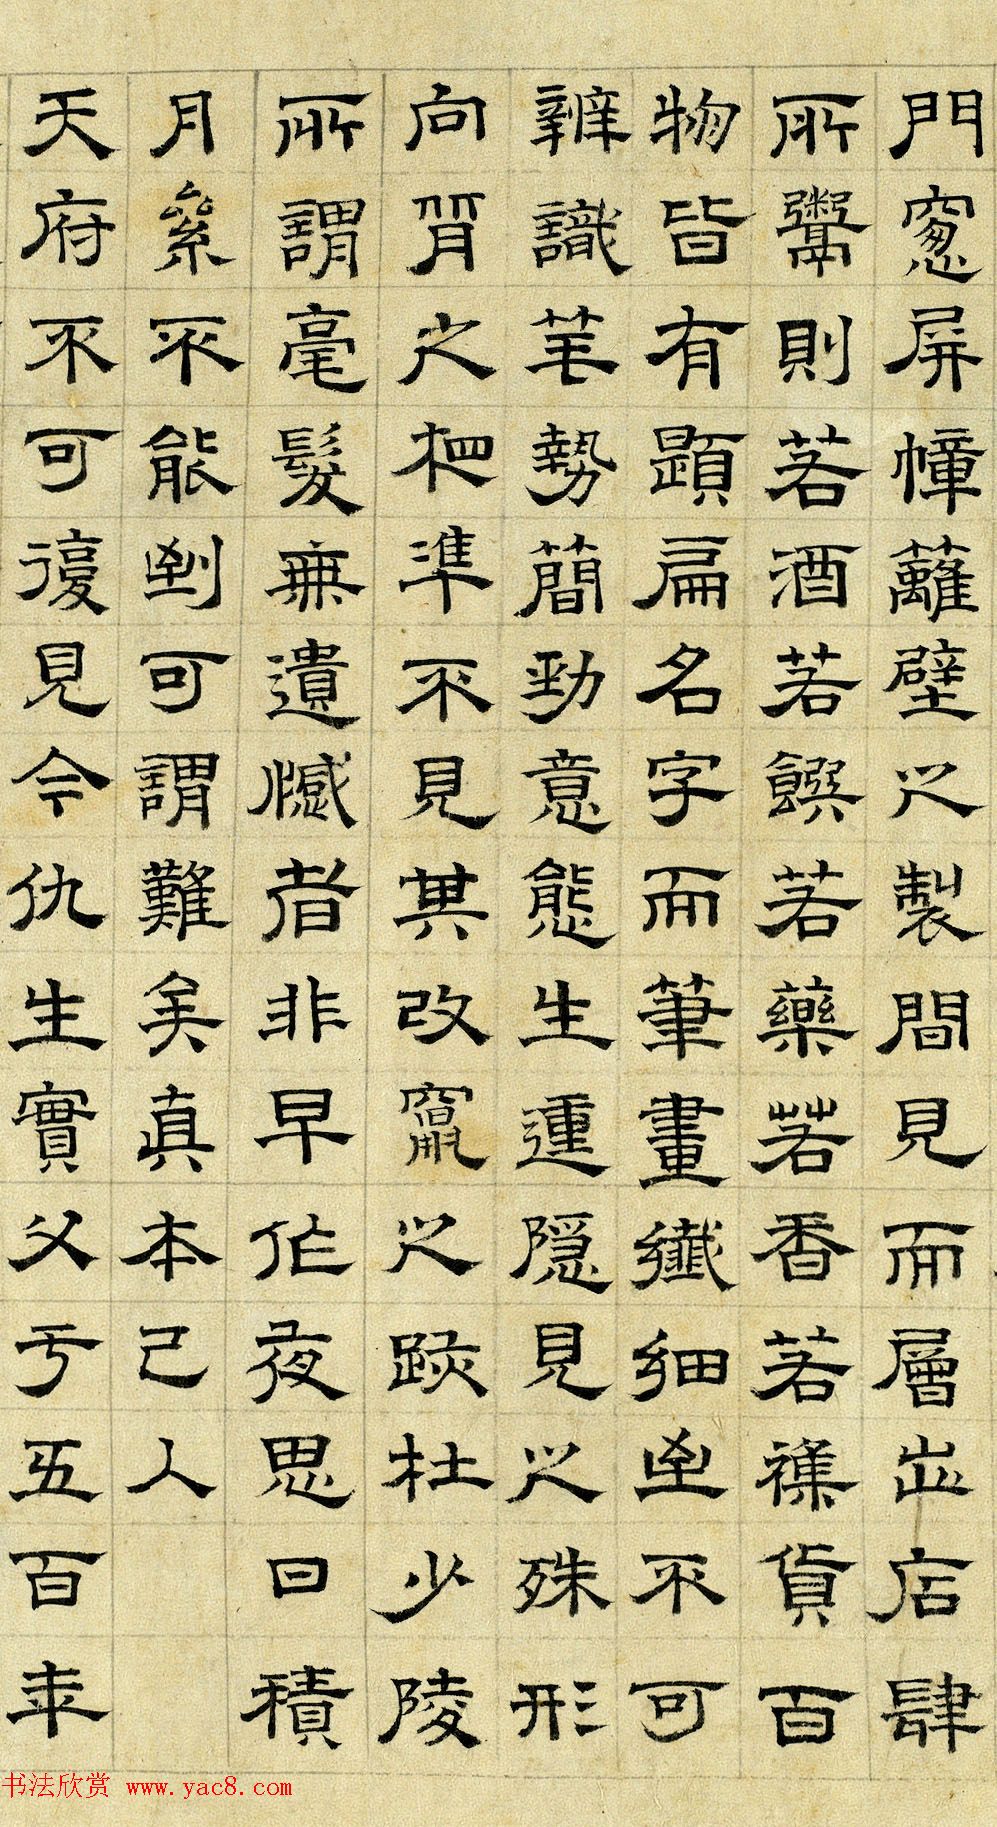 門窻屏幛籬壁之製間見而層出店肆
所鬻則若酒若饌若藥若香若襍貨百
物皆有題扁名字而筆畫纖細至不可
辨識筆勢簡勁意態生動隱見之殊形
向背之相準不見其改竄之跡杜少陵
所謂毫髮無遺憾者非早作夜思日積
月絫不能到可謂難矣真本已入
天府不可復見今仇生實父于五百年
书法欣赏 www.yac8.com